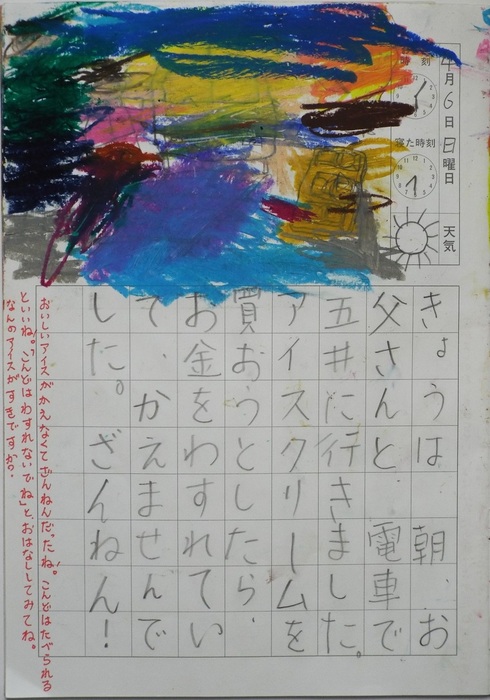 4月6日日曜日
時刻
寝た時刻
天気
きょうは、朝、お
父さんと、電車で
五井に行きました。
アイスクリームを
買おうとしたら、
お金をわすれてい
て、かえませんで
した。ざんねん！
おいしいアイスがかえなくてざんねんだったね！こんどはたべられる
といいね。「こんどはわすれないでね」と、おはなししてみてね。
なんのアイスがすきですか？